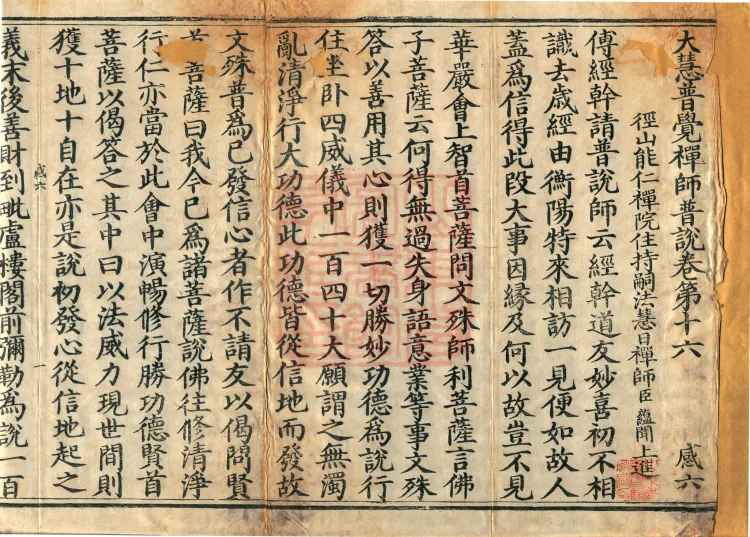 大慧普覺禪師普說卷第十六 感六
徑山能仁禪院住持嗣法慧日禪師臣蘊聞上進
傅經幹請普說師云經幹道友妙喜初不相
識去歲經由衡陽特來相訪一見便如故人
蓋爲信得此段大事因緣及何以故豈不見
華嚴會上智首菩薩問文殊師利菩薩言佛
子菩薩云何得無過失身語意業等事文殊
答以善用其心則獲一切勝妙功德爲說行
住坐卧四威儀中一百四十大願謂之無濁
亂清淨行大功德此功德皆從信地而發故
文殊普爲已發信心者作不請友以偈問賢
首菩薩曰我今已爲諸菩薩說佛往修清淨
行仁亦當於此會中演暢修行勝功德賢首
菩薩以偈答之其中曰以法威力現世間則
獲十地十自在亦是說初發心從信地起之
感六 一
義末後善財到毗盧樓閣前彌勒爲說一百